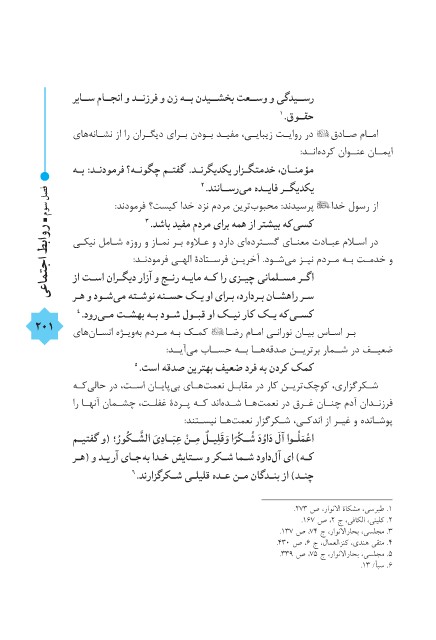 رسیدگی و وسعت بخشیدن به زن و فرزند و انجام سایر
حقوق.۱
امام صادق در روایت زیبایی، مفید بودن برای دیگران را از نشانه‌های
ایمان عنوان کرده‌اند:
مؤمنان، خدمتگزار یکدیگرند. گفتم چگونه؟ فرمودند: به
یکدیگر فایده می‌رسانند.۲
از رسول خدا پرسیدند: محبوب‌ترین مردم نزد خدا کیست؟ فرمودند:
کسی‌که بیشتر از همه برای مردم مفید باشد.۳
در اسلام عبادت معنای گسترده‌ای دارد و علاوه بر نماز و روزه شامل نیکی
و خدمت به مردم نیز می‌شود. آخرین فرستادهٔ الهی فرمودند:
اگر مسلمانی چیزی را که مایه رنج و آزار دیگران است از
سر راهشان بردارد، برای او یک حسنه نوشته می‌شود و هر
کسی‌که یک کار نیک او قبول شود به بهشت می‌رود.۴
بر اساس بیان نورانی امام رضا کمک به مردم به‌ویژه انسان‌های
ضعیف در شمار برترین صدقه‌ها به حساب می‌آید:
کمک کردن به فرد ضعیف بهترین صدقه است.۵
شکرگزاری، کوچک‌ترین کار در مقابل نعمت‌های بی‌پایان است، در حالی‌که
فرزندان آدم چنان غرق در نعمت‌ها شده‌اند که پردهٔ غفلت، چشمان آنها را
پوشانده و غیر از اندکی، شکرگزار نعمت‌ها نیستند:
اعْمَلُوا آلَ دَاوُدَ شُكْرًا وَقَلِيلٌ مِنْ عِبَادِيَ الشَّكُورُ؛ (و گفتیم
که) ای آل‌داود شما شکر و ستایش خدا به‌جای آرید و (هر
چند) از بندگان من عده قلیلی شکرگزارند.۶
۱. طبرسی، مشکاة الانوار، ص ۲۷۳.
۲. کلینی، الکافی، ج ۲، ص ۱۶۷.
۳. مجلسی، بحارالانوار، ج ۷۴، ص ۱۳۷.
۴. متقی هندی، کنزالعمال، ج ۶، ص ۴۳۰.
۵. مجلسی، بحارالانوار، ج ۷۵، ص ۳۳۹.
۶. سبأ/ ۱۳.
فصل سوم • روابط اجتماعی
۲۰۱